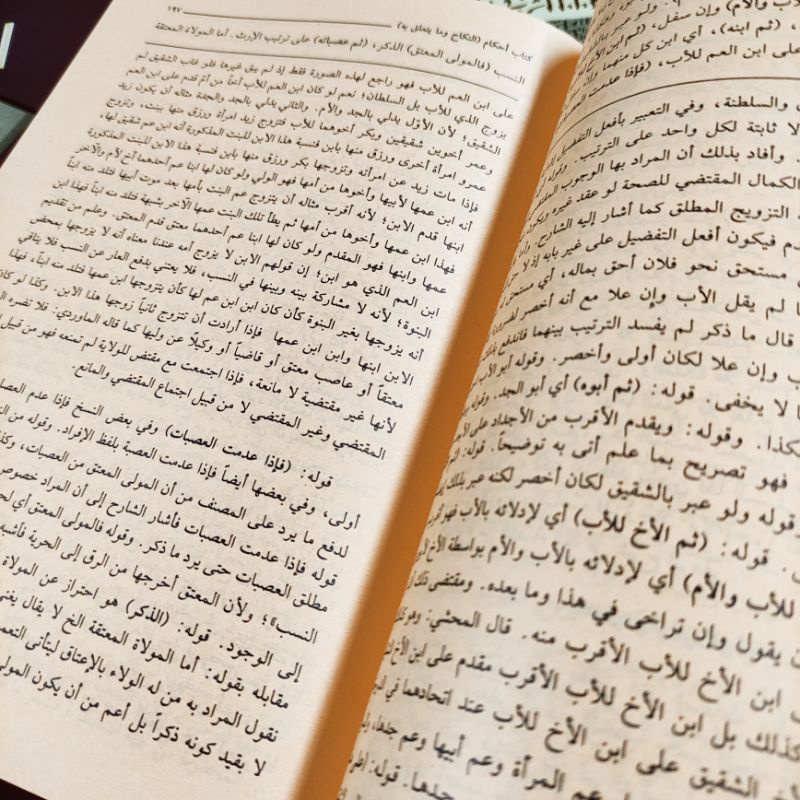 والأم) وإن سفل، (ثم
، (ثم ابنه)، أي ابن كل منهما وإن
على ابن العم للأب، (فإذا عدمت
والسلطنة، وفي التعبير بأفعل التفضيل
لا ثابتة لكل واحد على الترتيب. وقوله
وأفاد بذلك أن المراد بها الوجوب
الكمال المقتضي للصحة لو عقد غيره ويكون
التزويج المطلق كما أشار إليه الشارح.
دم فيكون أفعل التفضيل على غير بابه إذ لا
مستحق نحو فلان أحق بماله، أي مستحق
ا لم يقل الأب وإن علا مع أنه أخصر لضرورة
قال ما ذكر لم يفسد الترتيب بينهما فاندفع بذلك
ب وإن علا لكان أولى وأخصر. وقوله أبو الأب
ا لا يخفى. قوله: (ثم أبوه) أي أبو الجد. وقوله
كذا. وقوله: ويقدم الأقرب من الأجداد على
فهو تصريح بما علم أتى به توضيحاً. قوله: (ثم
وقوله ولو عبر بالشقيق لكان أخصر لكنه عبر بذلك
. قوله: (ثم الأخ للأب) أي لإدلائه بالأب فهو
للأب والأم) أي لإدلائه بالأب والأم بواسطة الأخ
ن يقول وإن تراخى في هذا وما بعده. ومقتضى ذلك
ابن الأخ للأب الأقرب منه. قال المحشي: وهو
كذلك بل ابن الأخ للأب الأقرب مقدم على ابن الأخ
الأخ الشقيق على ابن الأخ للأب عند اتحادهما في
عم المرأة وعم أبيها وعم جدها،
جدها. قوله:
كتاب أحكام (النكاح وما يتعلق به) ١٩٧
النسب (فالمولى المعتق) الذكر، (ثم عصباته) على ترتيب الإرث. أما المولاة المعتقة
على ابن العم للأب فهو راجع لهذه الصورة فقط إذ لم يبق غيرها فلو غاب الشقيق لم
يزوج الذي للأب بل السلطان؛ نعم لو كان ابن العم للأب أخاً من أم قدم على ابن العم
الشقيق؛ لأن الأول يدلي بالجد والأم. والثاني يدلي بالجد والجدة مثاله أن يكون زيد
وعمر أخوين شقيقين وبكر أخوهما للأب فتزوج زيد امرأة ورزق منها ببنت، وتزوج
عمرو امرأة أخرى ورزق منها بابن فنسبة هذا الابن للبنت المذكورة أنه ابن عم شقيق لها،
فإذا مات زيد عن امرأته وتزوجها بكر ورزق منها بابن فنسبة هذا الابن للبنت المذكورة
أنه ابن عمها لأبيها وأخوها من أمها فهو الولي ولو كان لها ابنا عم أحدهما أخ لأم والآخر
ابنها قدم الابن؛ لأنه أقرب مثاله أن يتزوج عم البنت بأمها بعد موت أبيها فتلد منه ابناً
فهذا ابن عمها وأخوها من أمها ثم يطأ تلك البنت عمها الآخر بشبهة فتلد منه ابناً فهذا ابن
عمها وابنها فهو المقدم ولو كان لها ابنا عم أحدهما معتق قدم المعتق. وعلم من تقديم
ابن العم الذي هو ابن؛ إن قولهم الابن لا يزوج أمه عندنا معناه أنه لا يزوجها بمحض
البنوة؛ لأنه لا مشاركة بينه وبينها في النسب، فلا يعتني بدفع العار عن النسب فلا ينافي
أنه يزوجها بغير البنوة كأن كان ابن ابن عم لها كأن يتزوجها ابن عمها فتلد منه ابناً، فهذا
الابن ابنها وابن ابن عمها فإذا أرادت أن تتزوج ثانياً زوجها هذا الابن. وكذا لو كان
معتقاً أو عاصب معتق أو قاضياً أو وكيلاً عن وليها كما قاله الماوردي: فلا تضره
لأنها غير مقتضية لا مانعة، فإذا اجتمعت مع مقتض للولاية لم تمنعه فهو من قبيل
المقتضي وغير المقتضي لا من قبيل اجتماع المقتضي والمانع.
قوله: (فإذا عدمت العصبات) وفي بعض النسخ فإذا عدم
أولى، وفي بعضها أيضاً فإذا عدمت العصبة بلفظ الإفراد. وقوله من
لدفع ما يرد على المصنف من أن المولى المعتق من العصبات،
قوله فإذا عدمت العصبات فأشار الشارح إلى أن المراد خصوص
مطلق العصبات حتى يرد ما ذكر. وقوله فالمولى المعتق أي
النسب»؛ ولأن المعتق أخرجها من الرق إلى الحرية فأشبه
إلى الوجود. قوله: (الذكر) هو احتراز عن المولاة
مقابله بقوله: أما المولاة المعتقة الخ لا يقال
نقول المراد به من له الولاء بالإعتاق ليتأتى
لا بقيد كونه ذكراً بل أعم من أن يكون